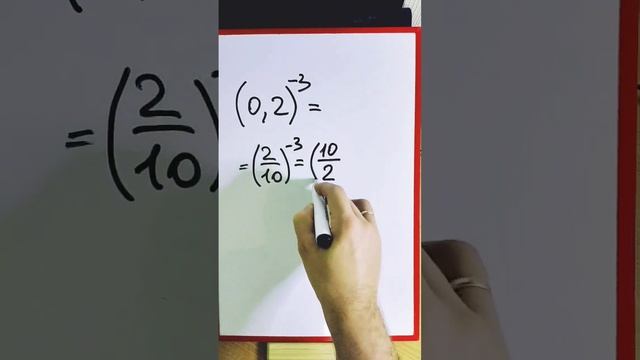 (0,2)⁻³ =
= (2/10)⁻³ = (10/2